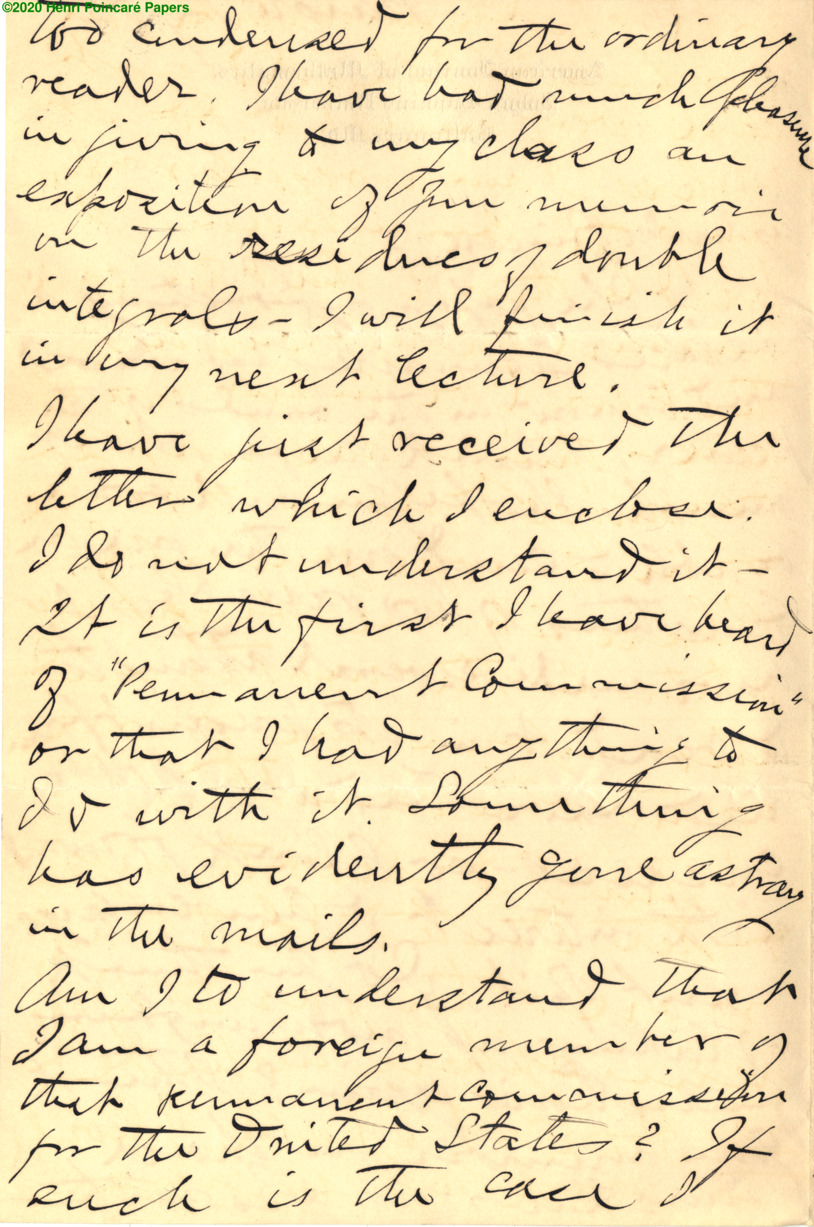 ©2020 Henri Poincaré Papers
too condensed for the ordinary
reader. I have had much pleasure
in giving to my class an
exposition of your memoir
on the residues of double
integrals – I will finish it
in my next lecture.
I have just received the
letter which I enclose.
I do not understand it –
It is the first I have heard
of "Permanent Commission"
or that I had anything to
do with it. Something
has evidently gone astray
in the mails.
Am I to understand that
I am a foreign member of
that permanent commission
for the United States? If
such is the case I